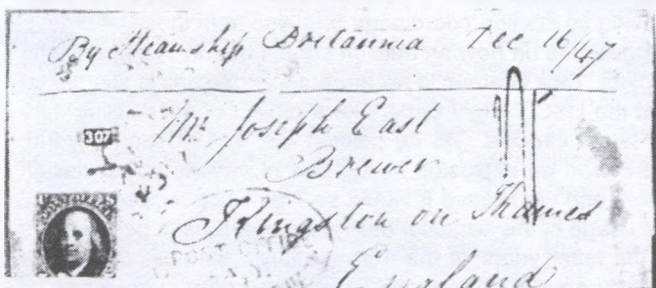 By Steamship Britannia Dec 16/47
307
Mr Joseph East
Brewer
Kingston on Thames
England